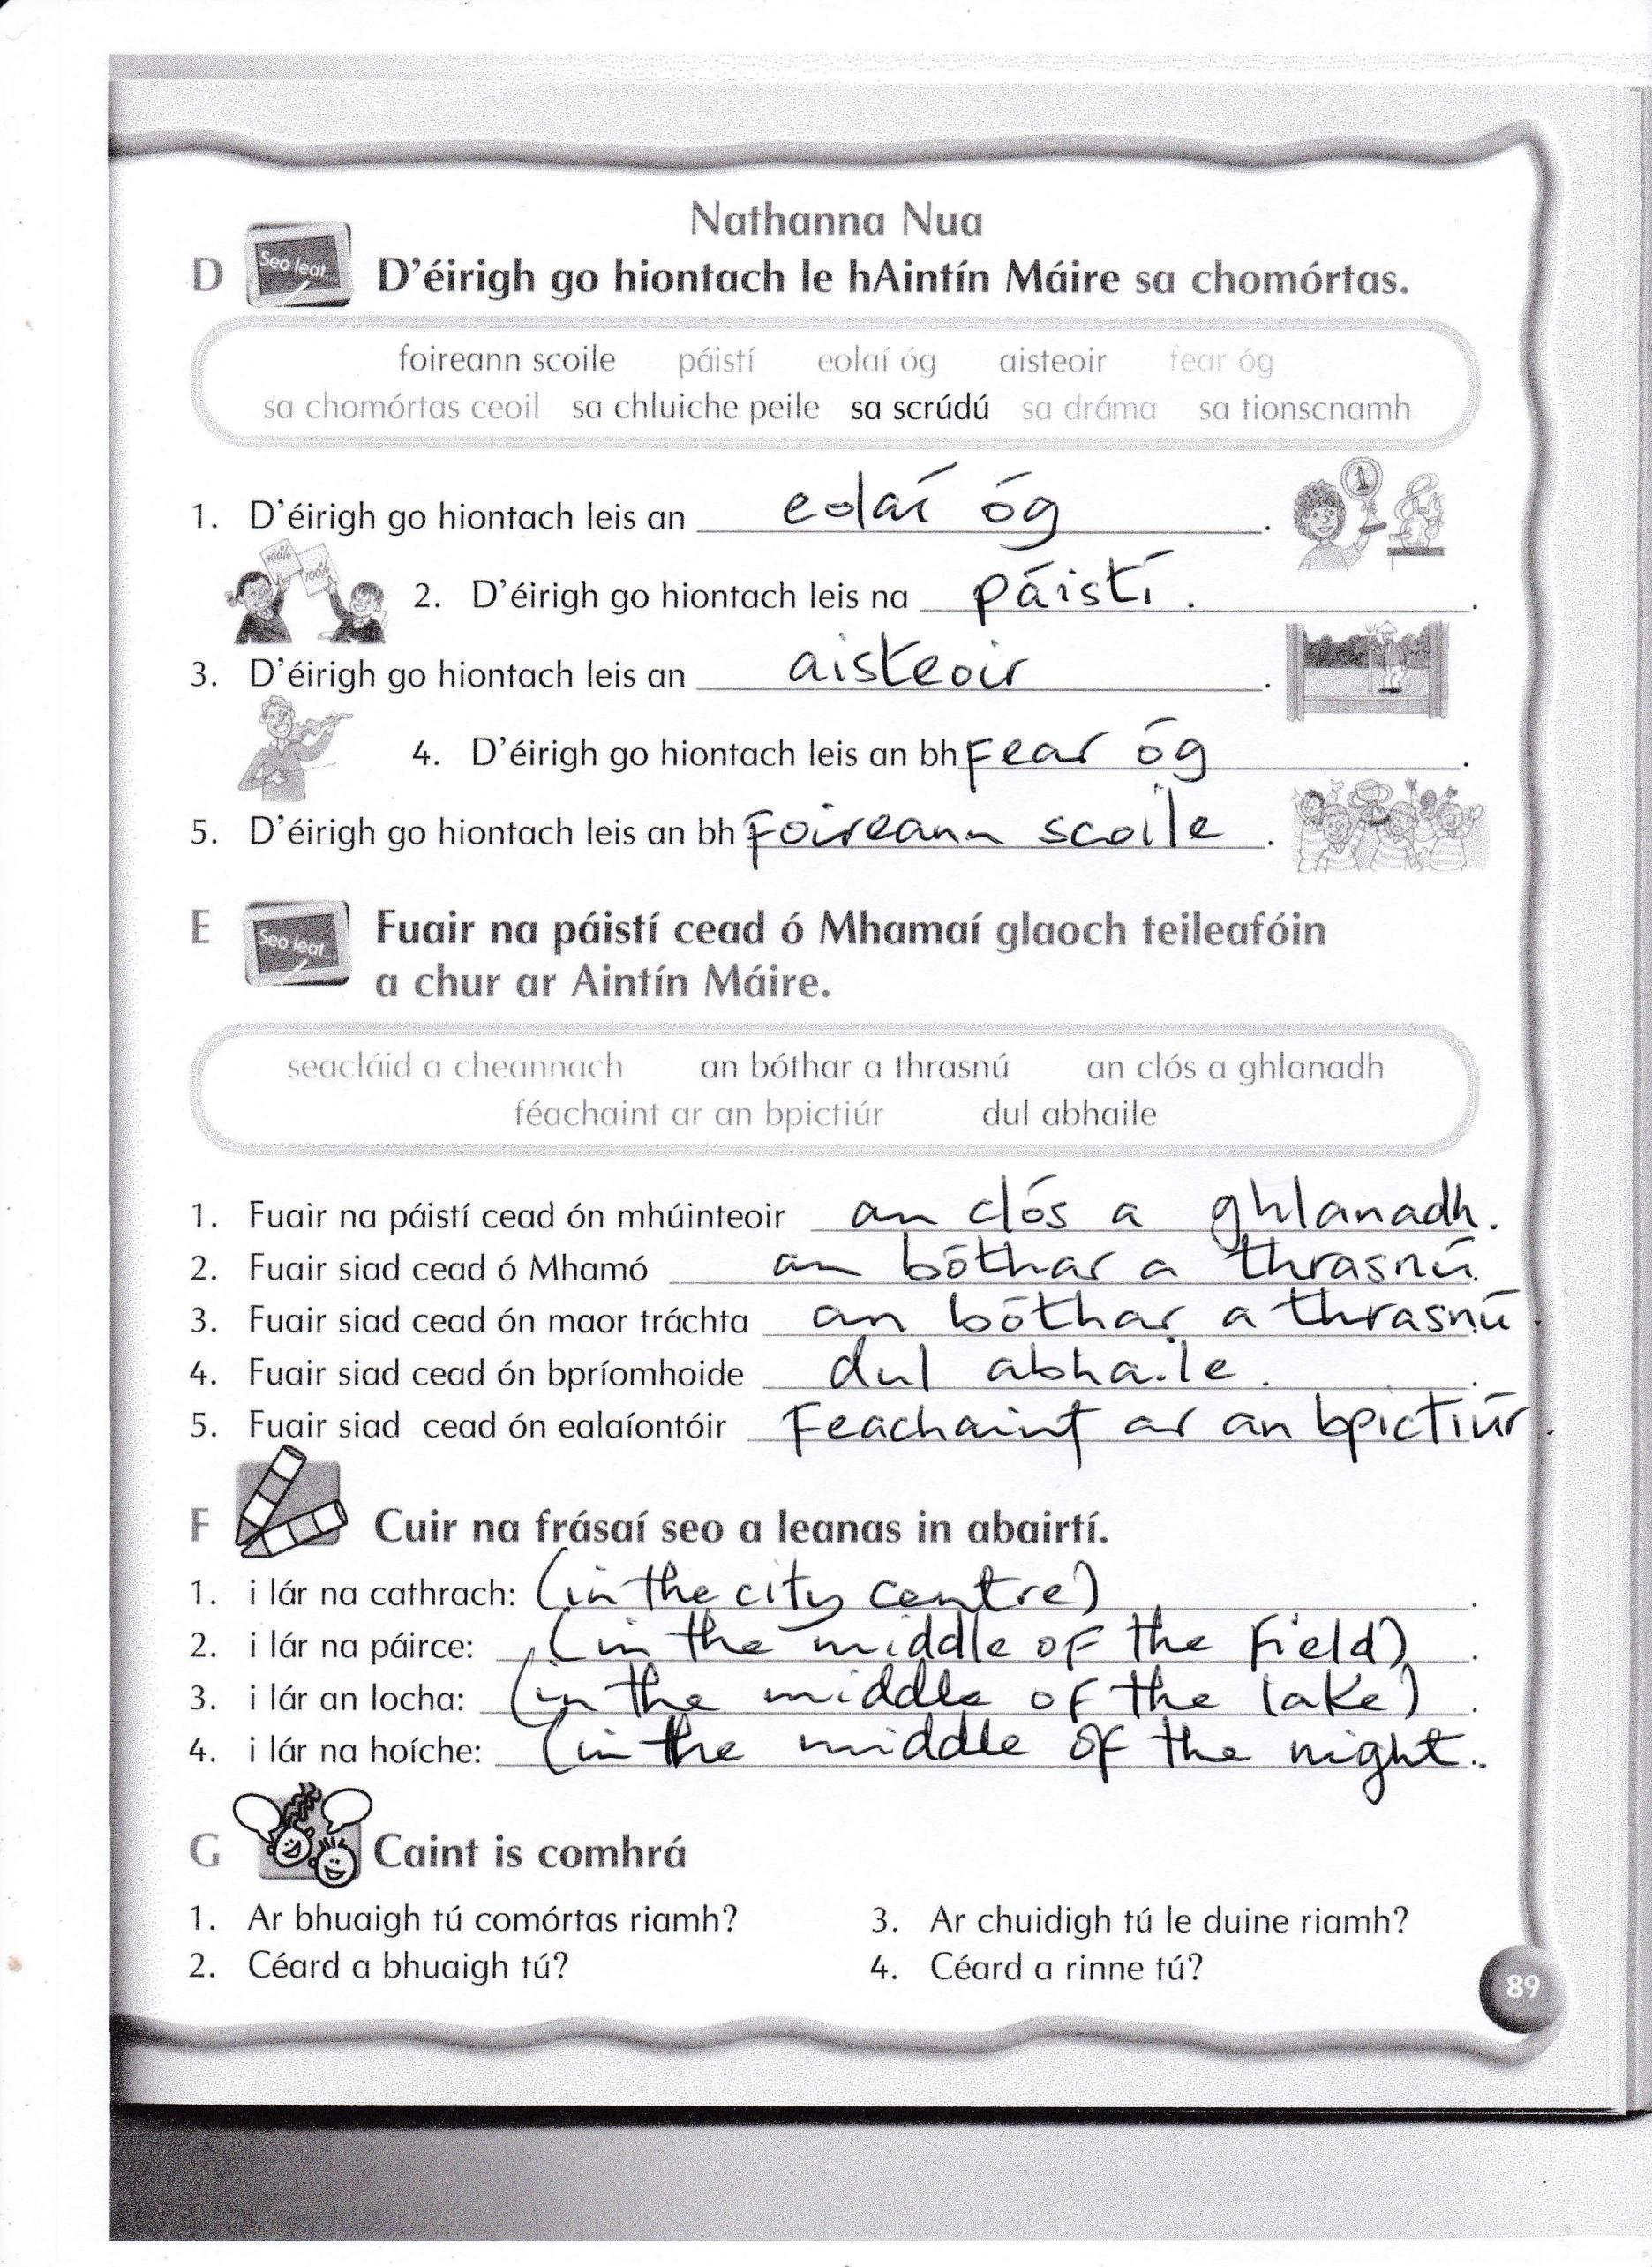 Nathanna Nua
D Seo leat... D'éirigh go hiontach le hAintín Máire sa chomórtas.
foireann scoile páistí eolaí óg aisteoir fear óg
sa chomórtas ceoil sa chluiche peile sa scrúdú sa dráma sa tionscnamh
1. D'éirigh go hiontach leis an eolaí óg.
1
100% 100%
2. D'éirigh go hiontach leis na páistí.
3. D'éirigh go hiontach leis an aisteoir.
4. D'éirigh go hiontach leis an bhfear óg.
5. D'éirigh go hiontach leis an bhfoireann scoile.
E Seo leat... Fuair na páistí cead ó Mhamaí glaoch teileafóin
a chur ar Aintín Máire.
seacláid a cheannach an bóthar a thrasnú an clós a ghlanadh
féachaint ar an bpictiúr dul abhaile
1. Fuair na páistí cead ón mhúinteoir an clós a ghlanadh.
2. Fuair siad cead ó Mhamó an bóthar a thrasnú.
3. Fuair siad cead ón maor tráchta an bóthar a thrasnú.
4. Fuair siad cead ón bpríomhoide dul abhaile.
5. Fuair siad cead ón ealaíontóir Feachaint ar an bpictiúr.
F Cuir na frásaí seo a leanas in abairtí.
1. i lár na cathrach: (in the city centre).
2. i lár na páirce: (in the middle of the field).
3. i lár an locha: (in the middle of the lake).
4. i lár na hoíche: (in the middle of the night..
G Caint is comhrá
1. Ar bhuaigh tú comórtas riamh?
2. Céard a bhuaigh tú?
3. Ar chuidigh tú le duine riamh?
4. Céard a rinne tú?
89